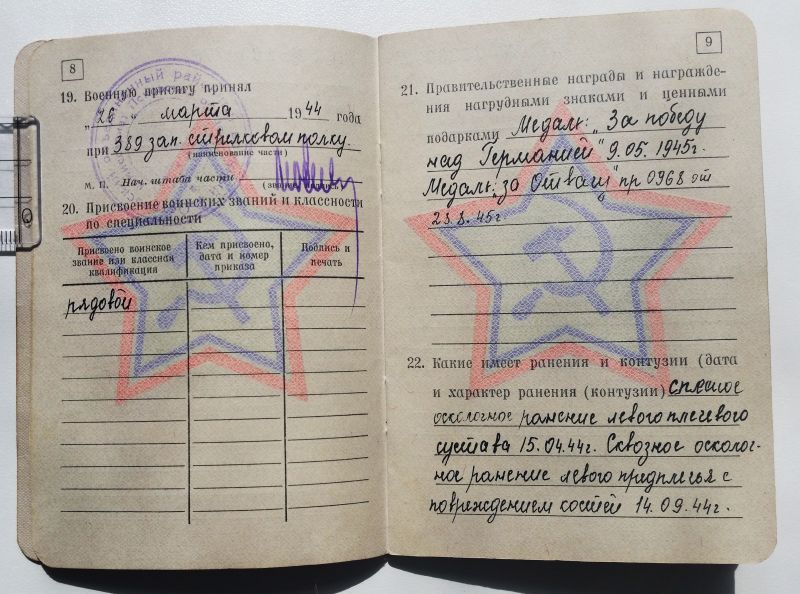 8
19. Военную присягу принял
„26 „ марта 1944 года
при 389 зап. стрелковом полку
(наименование части)
М. П. Нач. штаба части
20. Присвоение воинских званий и классности
по специальности
Присвоено воинское
звание или классная
квалификация
Кем присвоено,
дата и номер
приказа
Подпись и
печать
рядовой
9
21. Правительственные награды и награжде-
ния нагрудными знаками и ценными
подарками Медаль: „За победу
над Германией" 9.05.1945г.
Медаль: „за Отвагу" пр 0968 от
23.8.45г
22. Какие имеет ранения и контузии (дата
и характер ранения (контузии) слепое
осколочное ранение левого плечевого
сустава 15.04.44г. Сквозное осколоч-
ное ранение левого предплечья с
повреждением костей 14.09.44г.